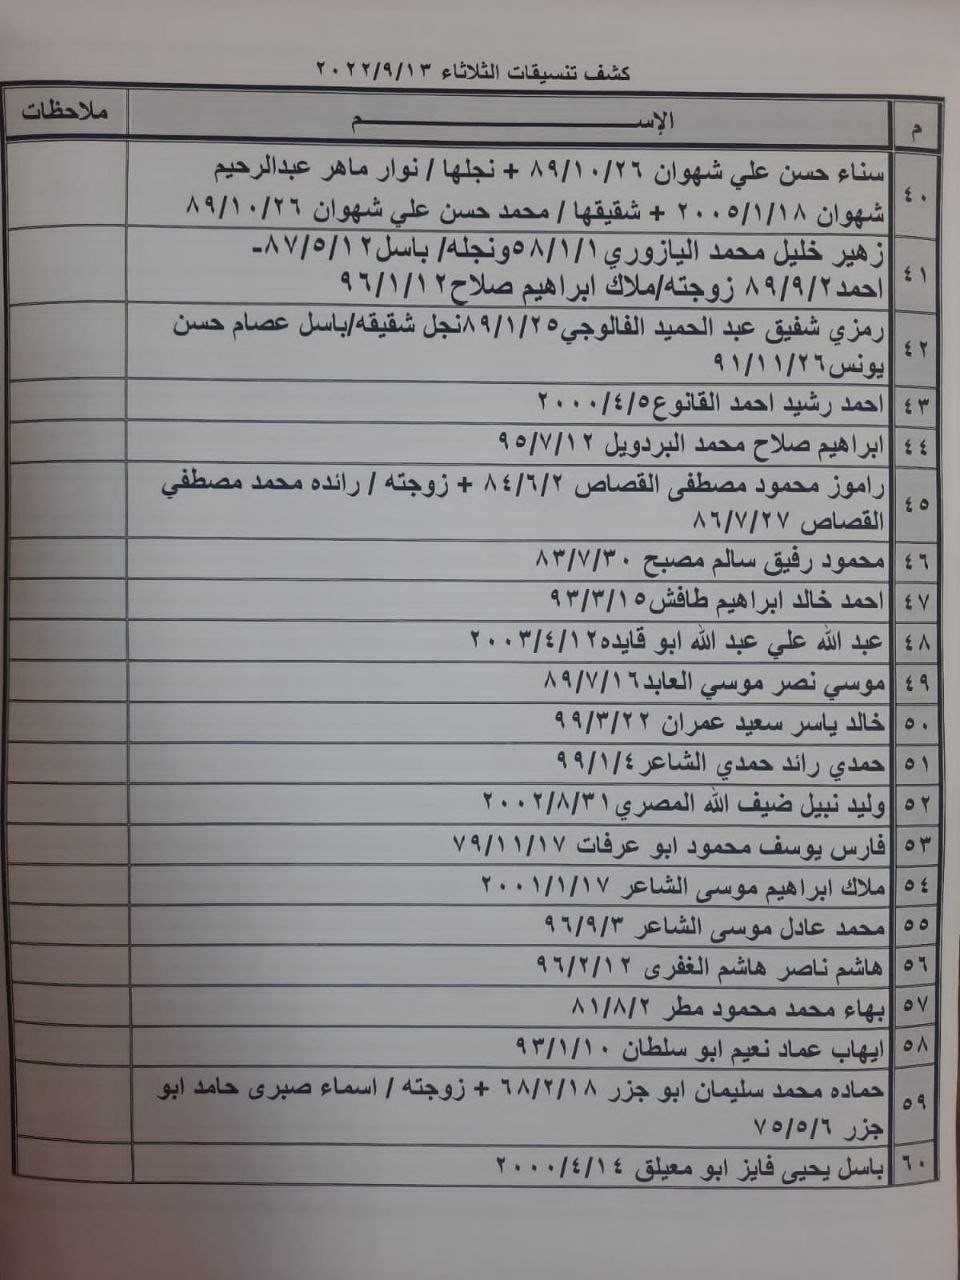 كشف تنسيقات الثلاثاء ٢٠٢٢/٩/١٣
م الإســـــــم ملاحظات
٤٠ سناء حسن علي شهوان ٨٩/١٠/٢٦ + نجلها / نوار ماهر عبدالرحيم
شهوان ٢٠٠٥/١/١٨ + شقيقها / محمد حسن علي شهوان ٨٩/١٠/٢٦
٤١ زهير خليل محمد اليازوري٥٨/١/١ونجله/ باسل٨٧/٥/١٢-
احمد٨٩/٩/٢ زوجته/ملاك ابراهيم صلاح٩٦/١/١٢
٤٢ رمزي شفيق عبد الحميد الفالوجي٨٩/١/٢٥نجل شقيقه/باسل عصام حسن
يونس٩١/١١/٢٦
٤٣ احمد رشيد احمد القانوع٢٠٠٠/٤/٥
٤٤ ابراهيم صلاح محمد البردويل ٩٥/٧/١٢
٤٥ راموز محمود مصطفى القصاص ٨٤/٦/٢ + زوجته / رائده محمد مصطفي
القصاص ٨٦/٧/٢٧
٤٦ محمود رفيق سالم مصبح ٨٣/٧/٣٠
٤٧ احمد خالد ابراهيم طافش٩٣/٣/١٥
٤٨ عبد الله علي عبد الله ابو قايده٢٠٠٣/٤/١٢
٤٩ موسي نصر موسي العابد٨٩/٧/١٦
٥٠ خالد ياسر سعيد عمران ٩٩/٣/٢٢
٥١ حمدي رائد حمدي الشاعر٩٩/١/٤
٥٢ وليد نبيل ضيف الله المصري٢٠٠٢/٨/٣١
٥٣ فارس يوسف محمود ابو عرفات ٧٩/١١/١٧
٥٤ ملاك ابراهيم موسى الشاعر ٢٠٠١/١/١٧
٥٥ محمد عادل موسى الشاعر ٩٦/٩/٣
٥٦ هاشم ناصر هاشم الغفرى ٩٦/٢/١٢
٥٧ بهاء محمد محمود مطر ٨١/٨/٢
٥٨ ايهاب عماد نعيم ابو سلطان ٩٣/١/١٠
٥٩ حماده محمد سليمان ابو جزر ٦٨/٢/١٨ + زوجته / اسماء صبرى حامد ابو
جزر ٧٥/٥/٦
٦٠ باسل يحيى فايز ابو معيلق ٢٠٠٠/٤/١٤